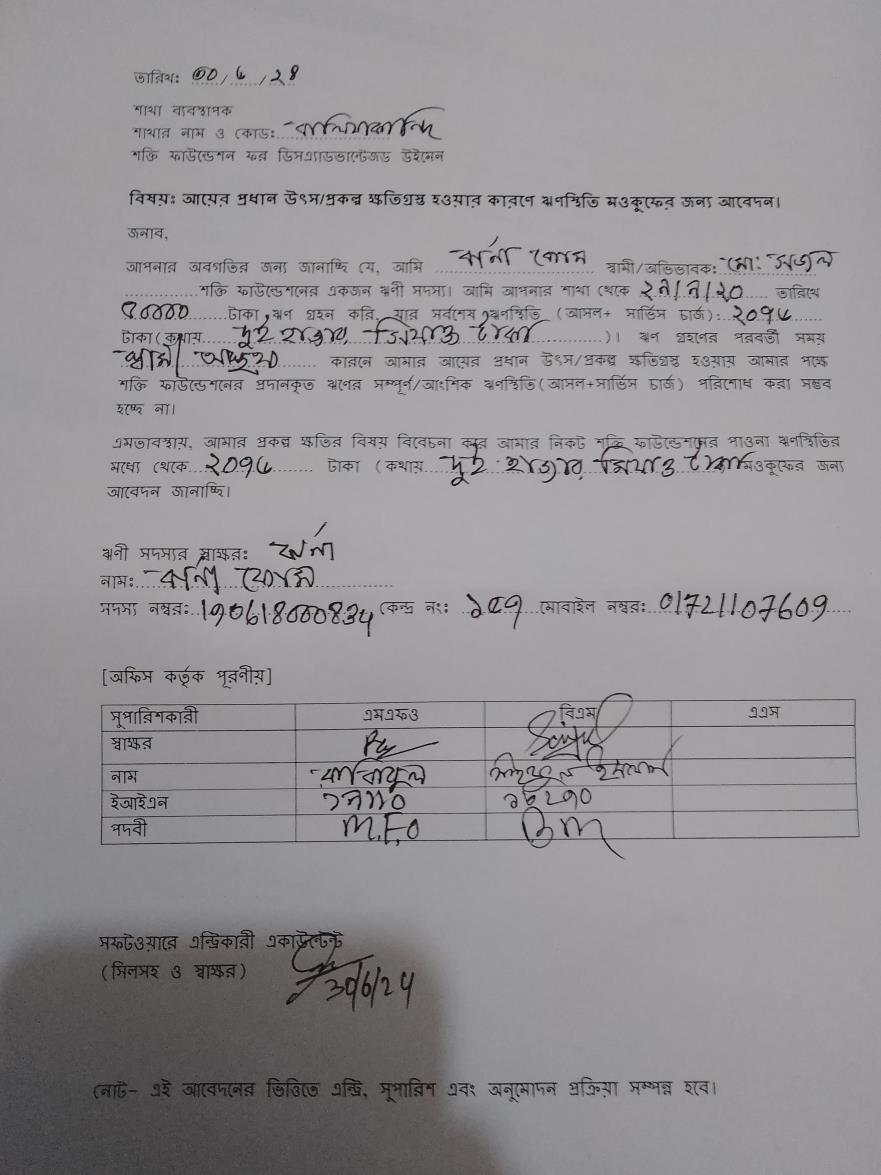 তারিখঃ ৩০/৬/২৪
শাখা ব্যবস্থাপক
শাখার নাম ও কোডঃ
শক্তি ফাউন্ডেশন ফর ডিসএ্যাডভান্টেজড উইমেন
বিষয়ঃ আয়ের প্রধান উৎস/প্রকল্প ক্ষতিগ্রস্ত হওয়ার কারণে ঋণস্থিতি মওকুফের জন্য আবেদন।
জনাব,
আপনার অবগতির জন্য জানাচ্ছি যে, আমি ঝর্না বেগম স্বামী/অভিভাবকঃ মো: সজল
শক্তি ফাউন্ডেশনের একজন ঋনী সদস্য। আমি আপনার শাখা থেকে ২৭/৭/২০ তারিখে
টাকা ঋণ গ্রহন করি, যার সর্বশেষ ঋণস্থিতি (আসল+ সার্ভিস চার্জ): ২০৭৬
টাকা (কথায় দুই হাজার ছিয়াত্তর টাকা)। ঋণ গ্রহণের পরবর্তী সময়
স্বামী অসুস্থ কারনে আমার আয়ের প্রধান উৎস/প্রকল্প ক্ষতিগ্রস্ত হওয়ায় আমার পক্ষে
শক্তি ফাউন্ডেশনের প্রদানকৃত ঋণের সম্পূর্ণ/আংশিক ঋণস্থিতি(আসল+সার্ভিস চার্জ) পরিশোধ করা সম্ভব
হচ্ছে না।
এমতাবস্থায়, আমার প্রকল্প ক্ষতির বিষয় বিবেচনা করে আমার নিকট শক্তি ফাউন্ডেশনের পাওনা ঋণস্থিতির
মধ্যে থেকে ২০৭৬ টাকা (কথায় দুই হাজার ছিয়াত্তর টাকা মওকুফের জন্য
আবেদন জানাচ্ছি।
ঋনী সদস্যর স্বাক্ষরঃ ঝর্না
নামঃ ঝর্না বেগম
সদস্য নম্বরঃ 190618000834 কেন্দ্র নংঃ ১৫৭ মোবাইল নম্বরঃ 01721107609
[অফিস কর্তৃক পূরনীয়]
সুপারিশকারী এমএফও বিএম এএস
স্বাক্ষর
নাম
ইআইএন
পদবী M.F.O BM
সফটওয়ারে এন্ট্রিকারী একাউন্টেন্ট
(সিলসহ ও স্বাক্ষর) 30/6/24
নোট- এই আবেদনের ভিত্তিতে এন্ট্রি, সুপারিশ এবং অনুমোদন প্রক্রিয়া সম্পন্ন হবে।